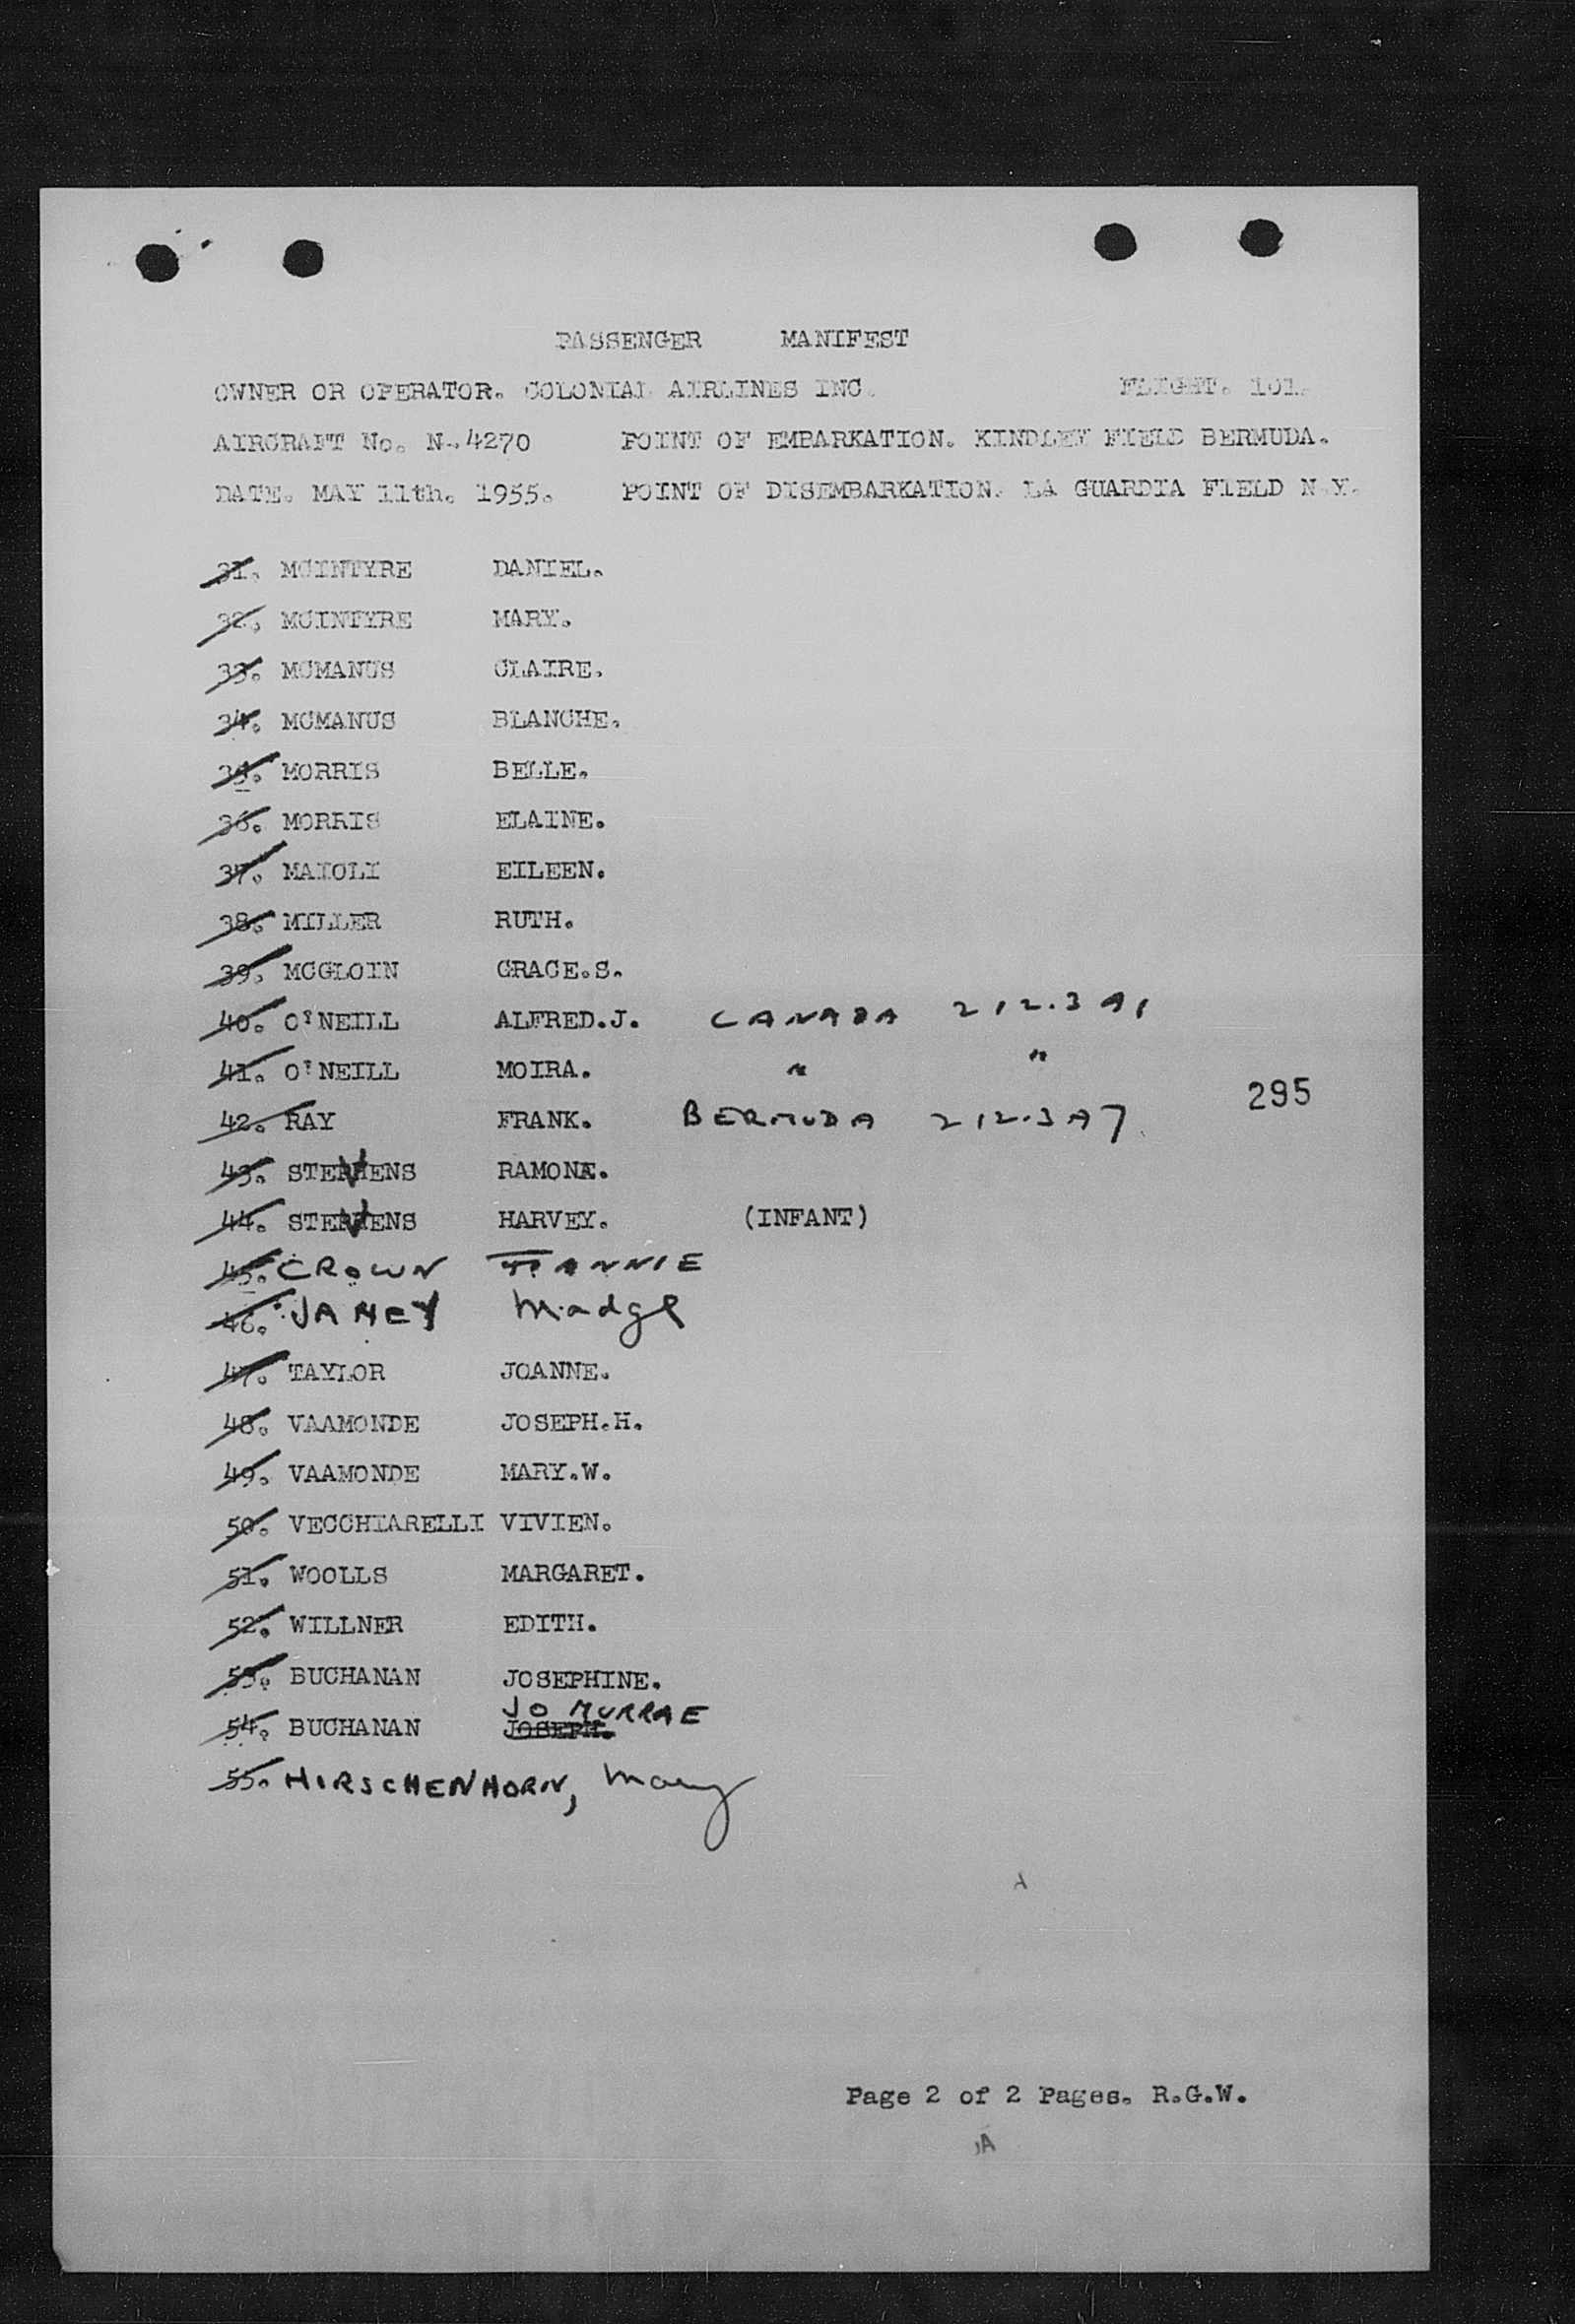 PASSENGER MANIFEST
OWNER OR OPERATOR. COLONIAL AIRLINES INC. FLIGHT. 101.
AIRCRAFT No. N..4270 POINT OF EMBARKATION. KINDLEY FIELD BERMUDA.
DATE. MAY 11th. 1955. POINT OF DISEMBARKATION. LA GUARDIA FIELD N.Y.
31. MCINTYRE DANIEL.
32. MCINTYRE MARY.
33. MCMANUS CLAIRE.
34. MCMANUS BLANCHE.
35. MORRIS BELLE.
36. MORRIS ELAINE.
37. MAIOLI EILEEN.
38. MILLER RUTH.
39. MCGLOIN GRACE.S.
40. O'NEILL ALFRED.J. CANADA 212.3 A1
41. O'NEILL MOIRA. " "
295
42. RAY FRANK. BERMUDA 212.3 A7
43. STEVENS RAMONA.
44. STEVENS HARVEY. (INFANT)
45. CROWN
46. Madge
47. TAYLOR JOANNE.
48. VAAMONDE JOSEPH.H.
49. VAAMONDE MARY.W.
50. VECCHIARELLI VIVIEN.
51. WOOLLS MARGARET.
52. WILLNER EDITH.
53. BUCHANAN JOSEPHINE.
JO MURRAE
54. BUCHANAN JOSEPH.
55. HIRSCHENHORN, Mary
A
Page 2 of 2 Pages. R.G.W.
A